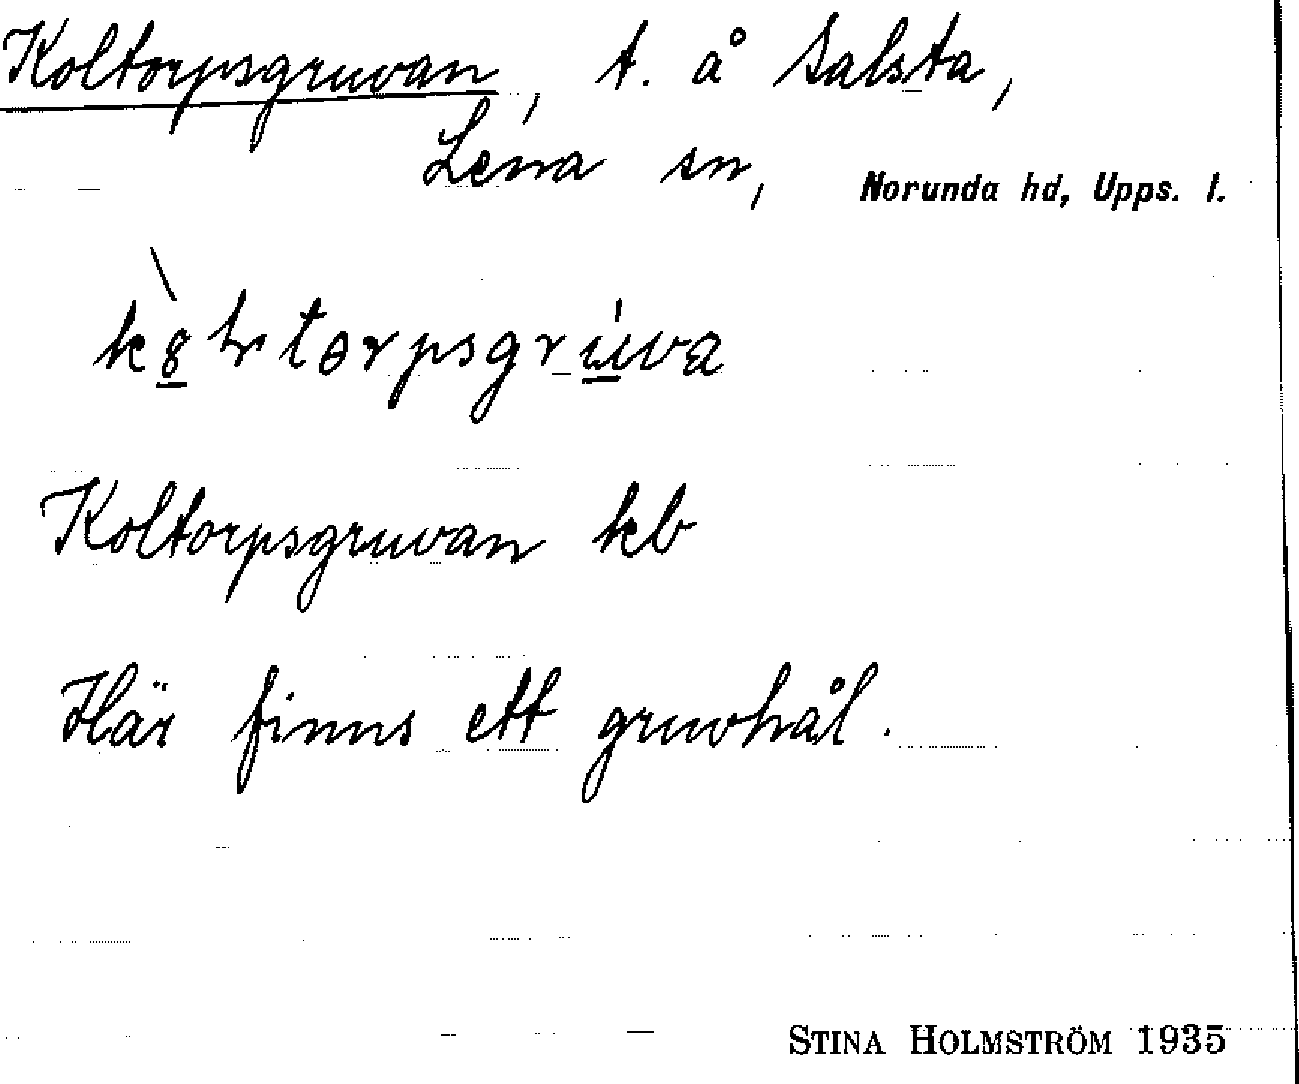 Koltorpsgruvan, t. å Salsta,
Lena sn, Norunda hd, Upps. l.
Koltorpsgruvan kb
Här finns ett gruvhål.
STINA HOLMSTRÖM 1935